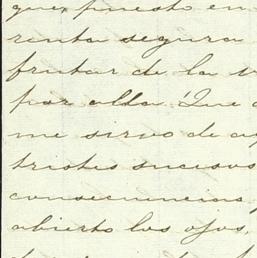 que, puesto en
renta segura
frutar de la
por alla! Que
me sirvo de
tristes sucesos
consecuencias,
abierto los ojos,